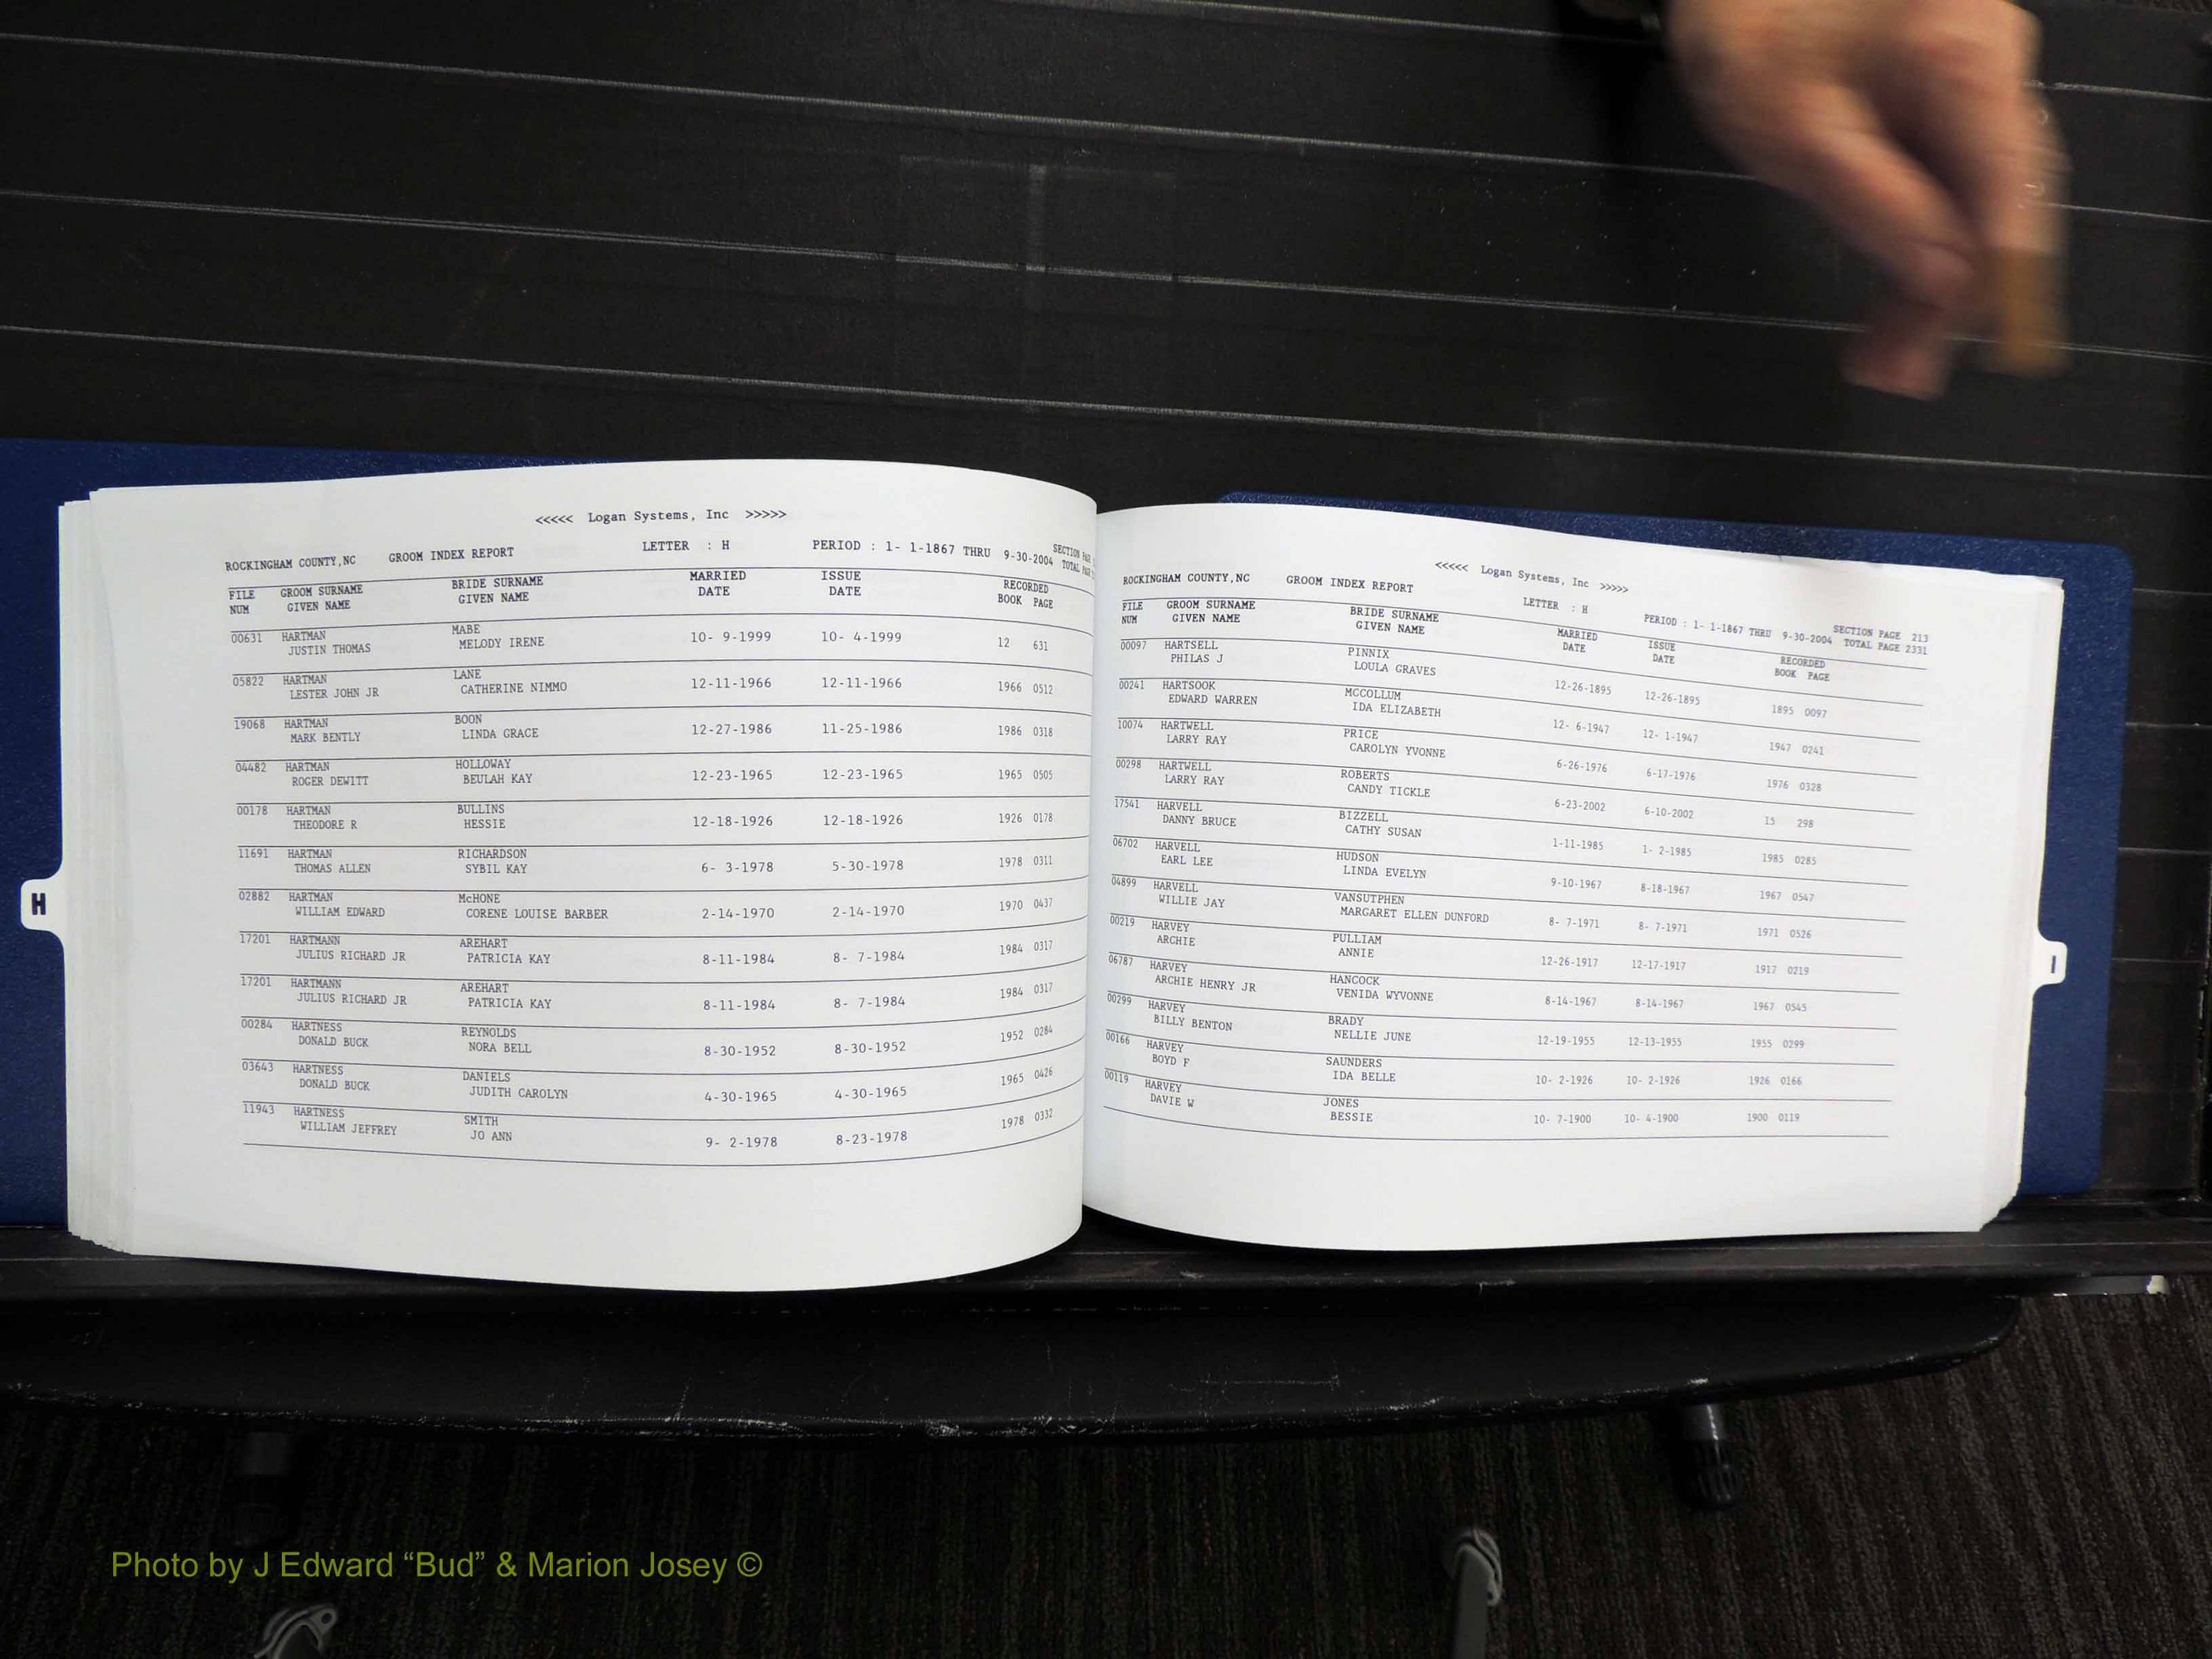 <<<<< Logan Systems, Inc >>>>>
ROCKINGHAM COUNTY,NC GROOM INDEX REPORT LETTER : H PERIOD : 1- 1-1867 THRU 9-30-2004 SECTION PAGE
TOTAL PAGE
FILE GROOM SURNAME BRIDE SURNAME MARRIED ISSUE RECORDED
NUM GIVEN NAME GIVEN NAME DATE DATE BOOK PAGE
00631 HARTMAN MABE 10- 9-1999 10- 4-1999 12 631
JUSTIN THOMAS MELODY IRENE
05822 HARTMAN LANE 12-11-1966 12-11-1966 1966 0512
LESTER JOHN JR CATHERINE NIMMO
19068 HARTMAN BOON 12-27-1986 11-25-1986 1986 0318
MARK BENTLY LINDA GRACE
04482 HARTMAN HOLLOWAY 12-23-1965 12-23-1965 1965 0505
ROGER DEWITT BEULAH KAY
00178 HARTMAN BULLINS 12-18-1926 12-18-1926 1926 0178
THEODORE R HESSIE
11691 HARTMAN RICHARDSON 6- 3-1978 5-30-1978 1978 0311
THOMAS ALLEN SYBIL KAY
02882 HARTMAN McHONE 2-14-1970 2-14-1970 1970 0437
WILLIAM EDWARD CORENE LOUISE BARBER
17201 HARTMANN AREHART 8-11-1984 8- 7-1984 1984 0317
JULIUS RICHARD JR PATRICIA KAY
17201 HARTMANN AREHART 8-11-1984 8- 7-1984 1984 0317
JULIUS RICHARD JR PATRICIA KAY
00284 HARTNESS REYNOLDS 8-30-1952 8-30-1952 1952 0284
DONALD BUCK NORA BELL
03643 HARTNESS DANIELS 4-30-1965 4-30-1965 1965 0426
DONALD BUCK JUDITH CAROLYN
11943 HARTNESS SMITH 9- 2-1978 8-23-1978 1978 0332
WILLIAM JEFFREY JO ANN
H
<<<<< Logan Systems, Inc >>>>>
ROCKINGHAM COUNTY,NC GROOM INDEX REPORT LETTER : H PERIOD : 1- 1-1867 THRU 9-30-2004 SECTION PAGE 213
TOTAL PAGE 2331
FILE GROOM SURNAME BRIDE SURNAME MARRIED ISSUE RECORDED
NUM GIVEN NAME GIVEN NAME DATE DATE BOOK PAGE
00097 HARTSELL PINNIX 12-26-1895 12-26-1895 1895 0097
PHILAS J LOULA GRAVES
00241 HARTSOOK MCCOLLUM 12- 6-1947 12- 1-1947 1947 0241
EDWARD WARREN IDA ELIZABETH
10074 HARTWELL PRICE 6-26-1976 6-17-1976 1976 0328
LARRY RAY CAROLYN YVONNE
00298 HARTWELL ROBERTS 6-23-2002 6-10-2002 15 298
LARRY RAY CANDY TICKLE
17541 HARVELL BIZZELL 1-11-1985 1- 2-1985 1985 0285
DANNY BRUCE CATHY SUSAN
06702 HARVELL HUDSON 9-10-1967 8-18-1967 1967 0547
EARL LEE LINDA EVELYN
04899 HARVELL VANSUTPHEN 8- 7-1971 8- 7-1971 1971 0526
WILLIE JAY MARGARET ELLEN DUNFORD
00219 HARVEY PULLIAM 12-26-1917 12-17-1917 1917 0219
ARCHIE ANNIE
06787 HARVEY HANCOCK 8-14-1967 8-14-1967 1967 0545
ARCHIE HENRY JR VENIDA WYVONNE
00299 HARVEY BRADY 12-19-1955 12-13-1955 1955 0299
BILLY BENTON NELLIE JUNE
00166 HARVEY SAUNDERS 10- 2-1926 10- 2-1926 1926 0166
BOYD F IDA BELLE
00119 HARVEY JONES 10- 7-1900 10- 4-1900 1900 0119
DAVIE W BESSIE
I
Photo by J Edward “Bud” & Marion Josey ©